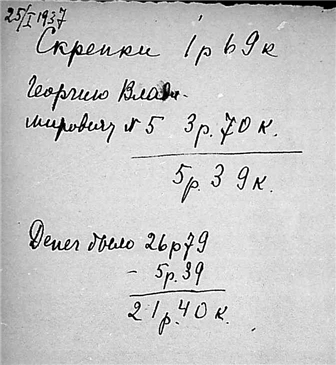 25/I 1937
Скрепки 1р 69к
Георгию Влади-
мировичу №5 3р. 70к.
5р. 39к.
Денег было 26р79
- 5р. 39
21р. 40к.